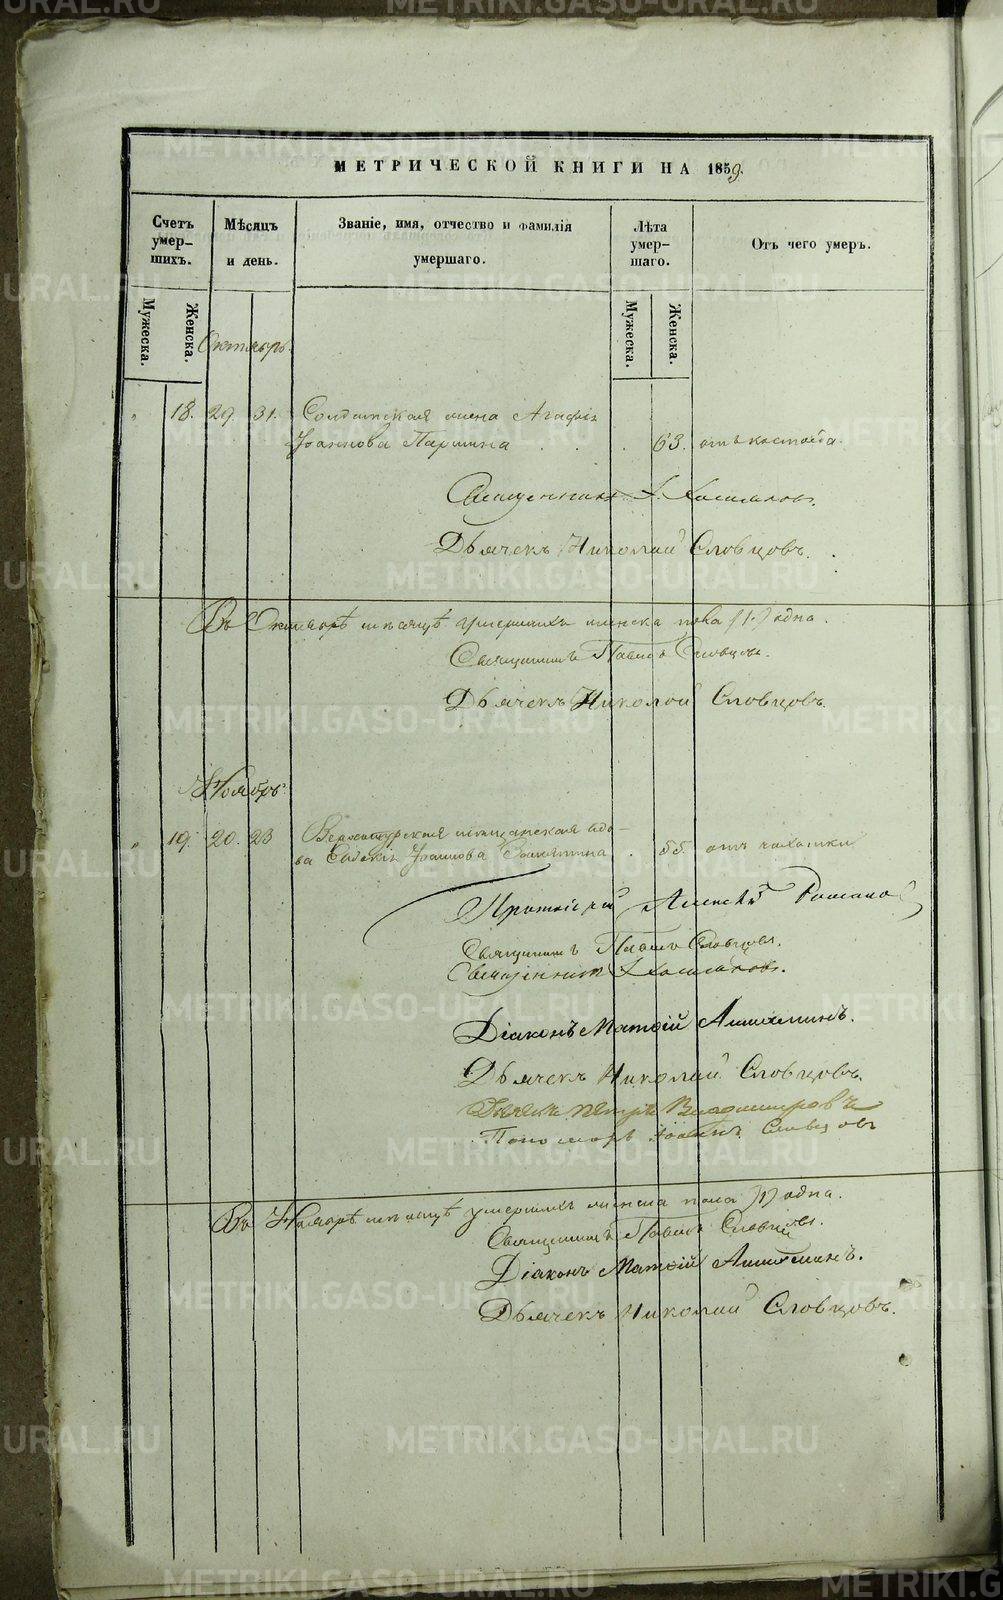 МЕТРИЧЕСКОЙ КНИГИ НА 1859.
Счетъ умер- шихъ.
Мѣсяцъ и день.
Званіе, имя, отчество и фамилія умершаго.
Лѣта умер- шаго.
Отъ чего умеръ.
Мужеска.
Женска.
Мужеска.
Женска.
Октябрь.
" 18. 29. 31. Солдатская жена Агафія
Іоаннова Паршина 63.
Священникъ
Дьячекъ Николай Словцовъ.
Въ Октябрѣ мѣсяцѣ умершихъ женска пола (1.) одна.
Священникъ Павелъ Словцовъ.
Дьячекъ Николай Словцовъ.
Ноябрь.
" 19. 20. 23 Верхотурская мѣщанская вдо-
ва Іоаннова Замятина 55. отъ чахотки
Протоіерей Алексѣй
Священникъ Павелъ Словцовъ.
Священникъ
Діаконъ Матѳій
Дьячекъ Николай Словцовъ.
Дьячекъ Петръ Владимировъ
Пономарь Іоаннъ Словцовъ
Въ Ноябрѣ мѣсяцѣ умершихъ женска пола (1) одна.
Священникъ Павелъ Словцовъ.
Діаконъ Матѳій
Дьячекъ Николай Словцовъ.
METRIKI.GASO-URAL.RU